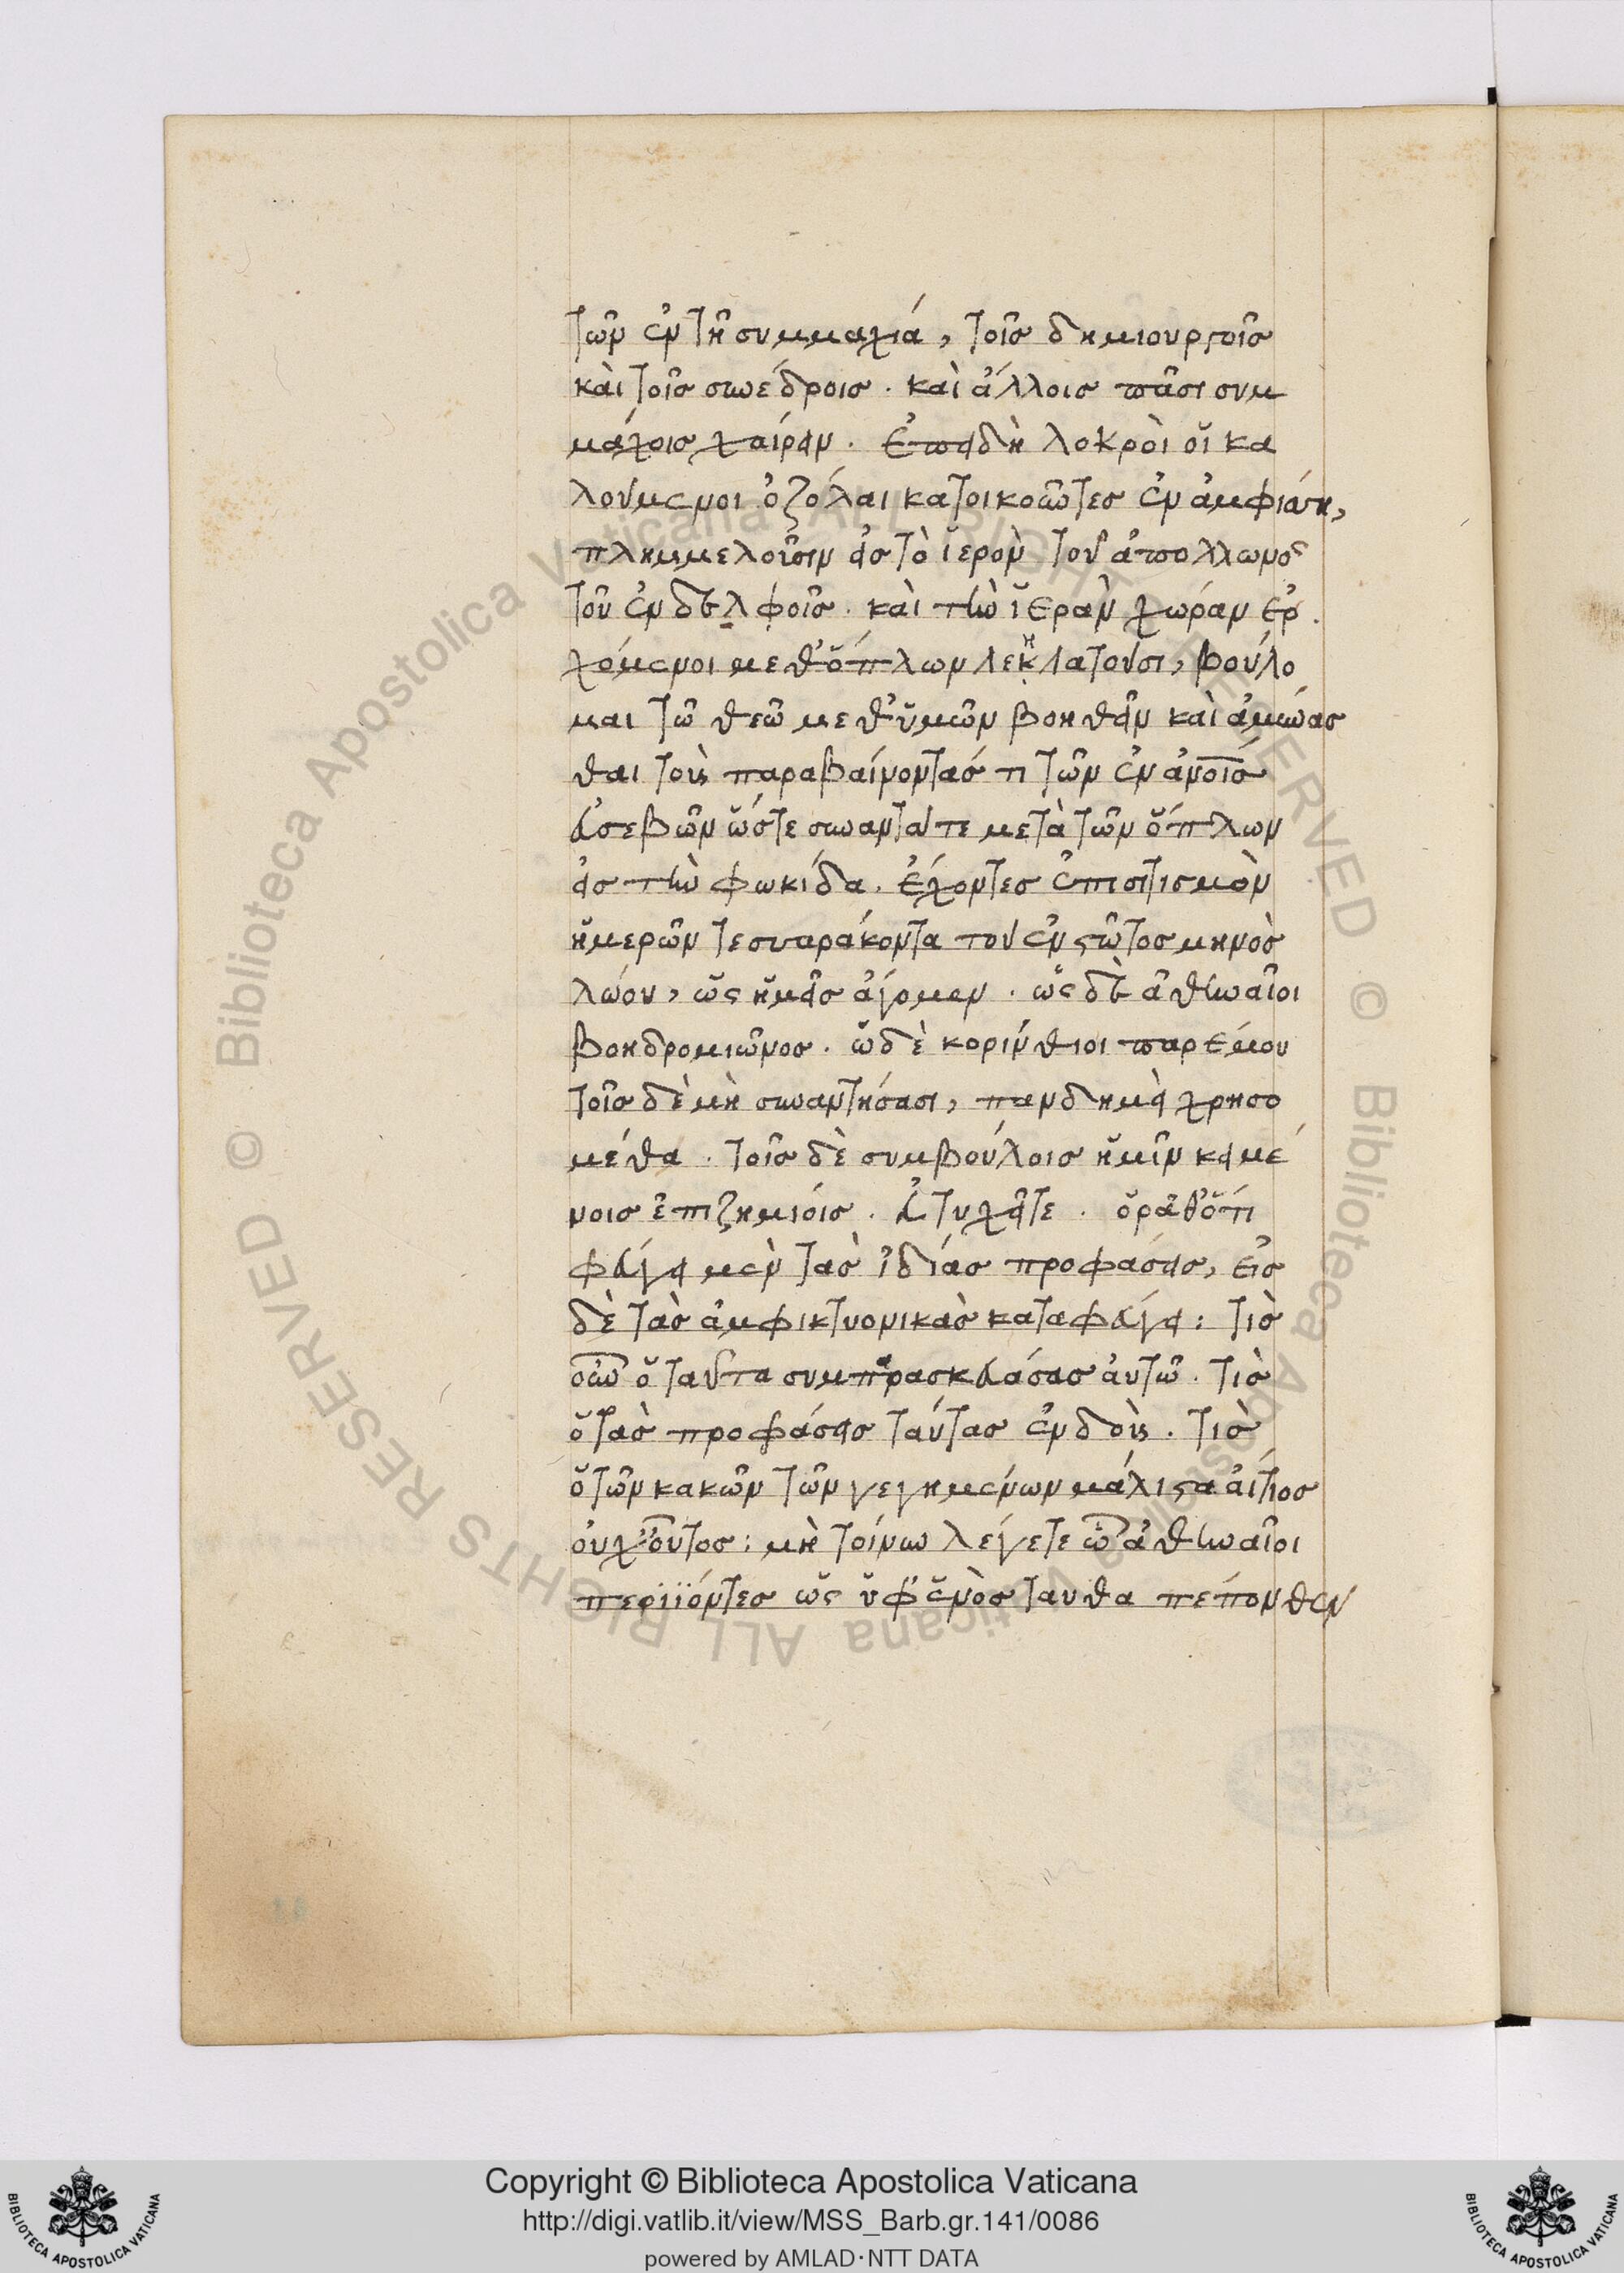 τῶν ἐν τῆ συμμαχιά, τοῖς δημιουργοῖς
κὰι τοῖς συνέδροις. καὶ ἄλλοις πᾶσι συμ
μάχοις χαίρειν. ἐπειδὴ λοκρὸι οἵ κα
λούμενοι ὀζόλαι κατοικοῦντες ἐν ἀμφιάση,
πλημμελοῦσιν εἰς τὸ ἱερὸν τοῦ ἀπολλωνος
τοῦ ἐν δελφοῖς. καὶ τὴν ἱερὰν χωράν ἐρ
χόμενοι μεθ' ὅπλων λεηλατοῦσι, βούλο
μαι τῶ θεῶ μεθ' ὑμῶν βοηθεῖν καὶ ἀμύνασ
θαι τοὺς παραβαίνοντασ τι τῶν ἐν ἀνοῖς
ἐυσεβῶν ὥστε συναντᾶτε μετὰ τῶν ὅπλων
εἰς τὴν φωκίδα. ἔχοντες ἐπισιτισμὸν
ἡμερῶν τεσσαράκοντα τοῦ ἐνστῶτος μηνὸς
λώου, ὡς ἡμεῖς ἄγομεν. ὡς δὲ ἀθηναῖοι
βοηδρομιῶνος. ὡ δὲ κορίνθιοι παρ ἐμου
τοῖς δὲ μὴ συναντήσασι, πανδημεὶ χρησο
μέθα. τοῖς δὲ συμβούλοις ἡμῖν κειμέ
νοις ἐπιζημίοις. ἐυτυχεῖτε. ὁρᾶθ' ὅτι
φεύγει μὲν τὰς ἰδίας προφάσεις, εἰς
δὲ τὰς ἀμφικτυονικὰς καταφεύγει: τὶς
οὖν ὁ ταῦτα συμπαρασκευάσας ἀυτῶ. τὶς
ὁ τὰς προφάσεις ταύτας ἐνδοὺς. τὶς
ὁ τῶν κακῶν τῶν γεγημένων μάλιστα ἄιτιος
οὐχ' οὗτος: μὴ τοίνυν λέγετε ὦ ἀθηναῖοι
περιϊόντες ὡς ὑφ' ἑνὸς ταυθα πέπονθεν